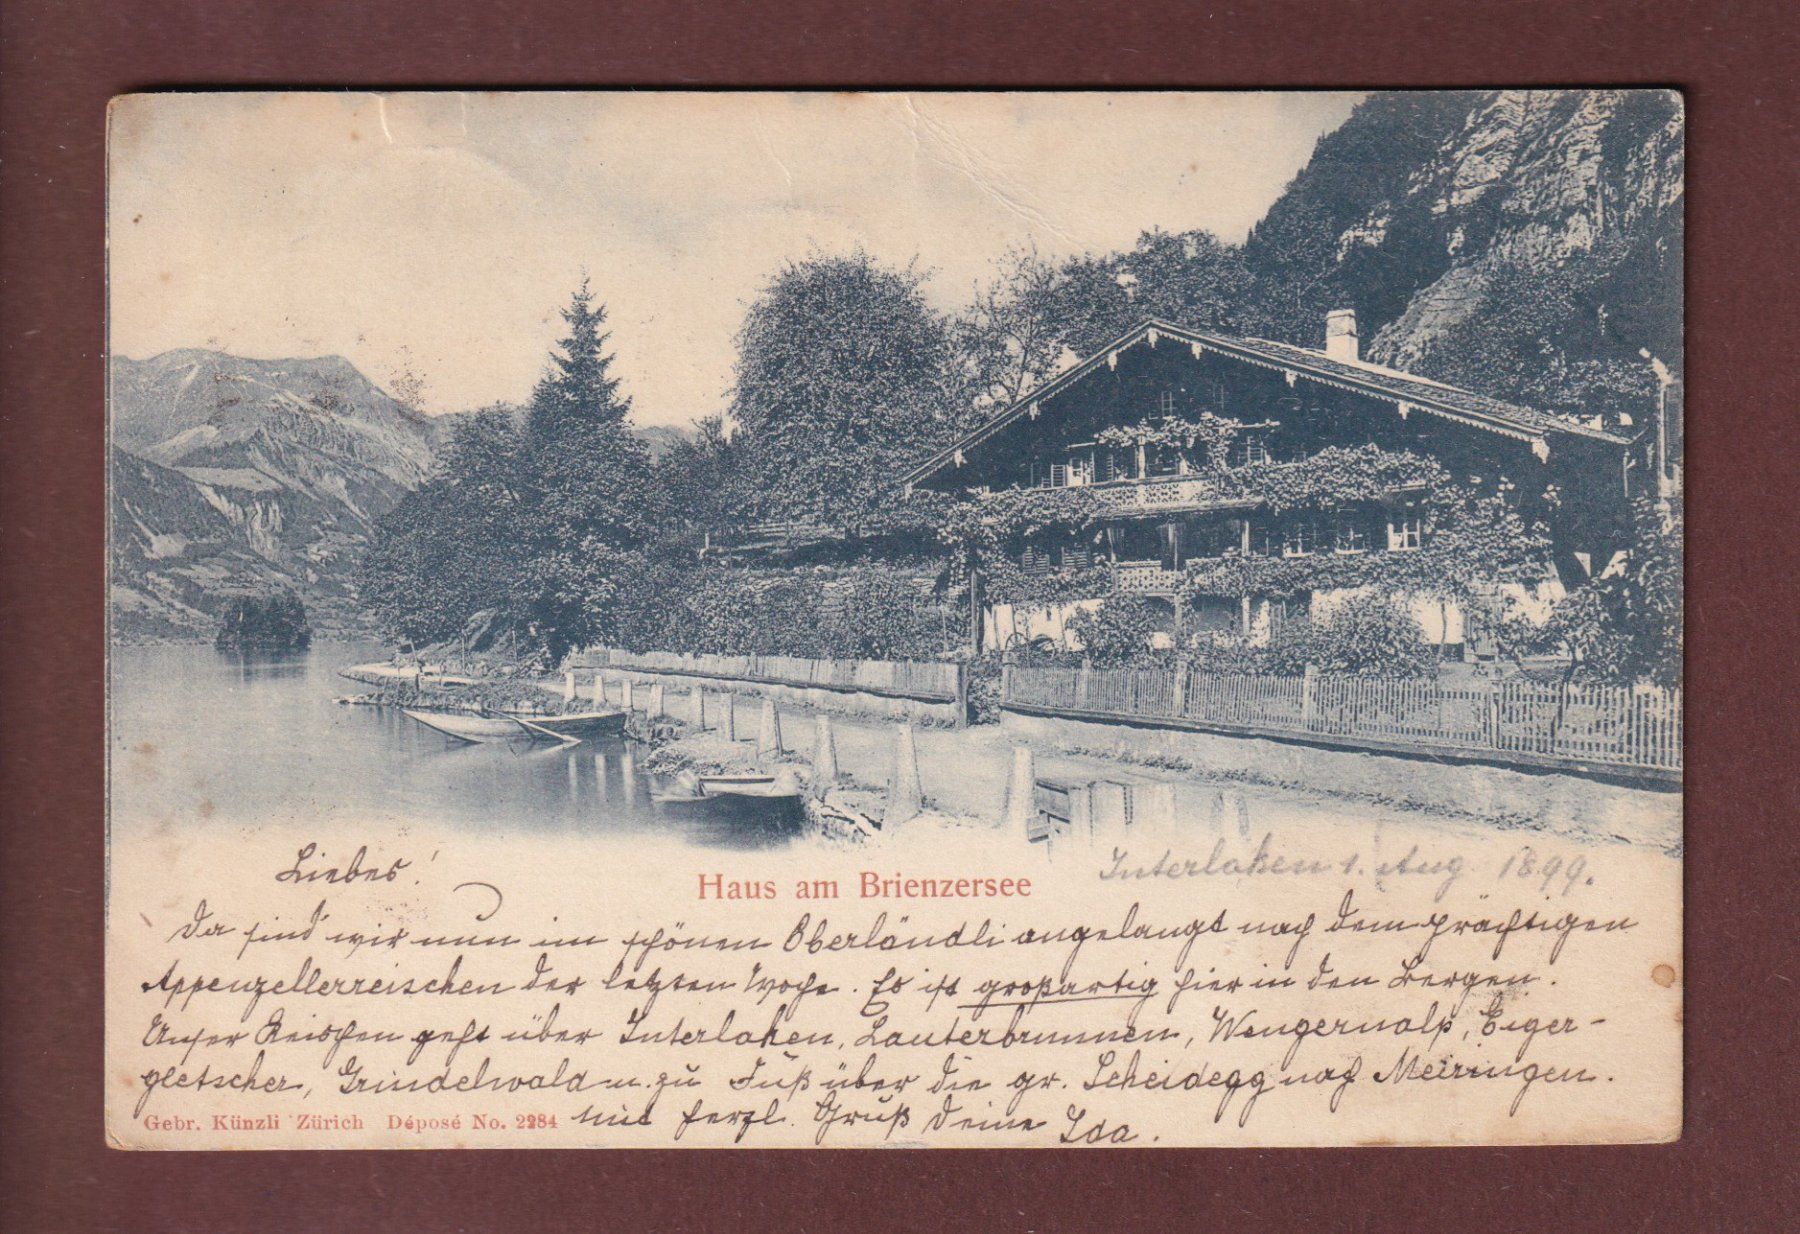 Haus am Brienzersee
Interlaken 1. Aug. 1899.
Liebes!
Da sind wir nun im schönen Oberländli angelangt nach dem prächtigen
Appenzellerreischen der letzten Woche. Es ist großartig hier in den Bergen.
Unser Reischen geht über Interlaken, Lauterbrunnen, Wengernalp, Eiger-
gletscher, Grindelwald u. zu Fuß über die gr. Scheidegg nach Meiringen.
Mit herzl. Gruß Deine Ida.
Gebr. Künzli Zürich Déposé No. 2284